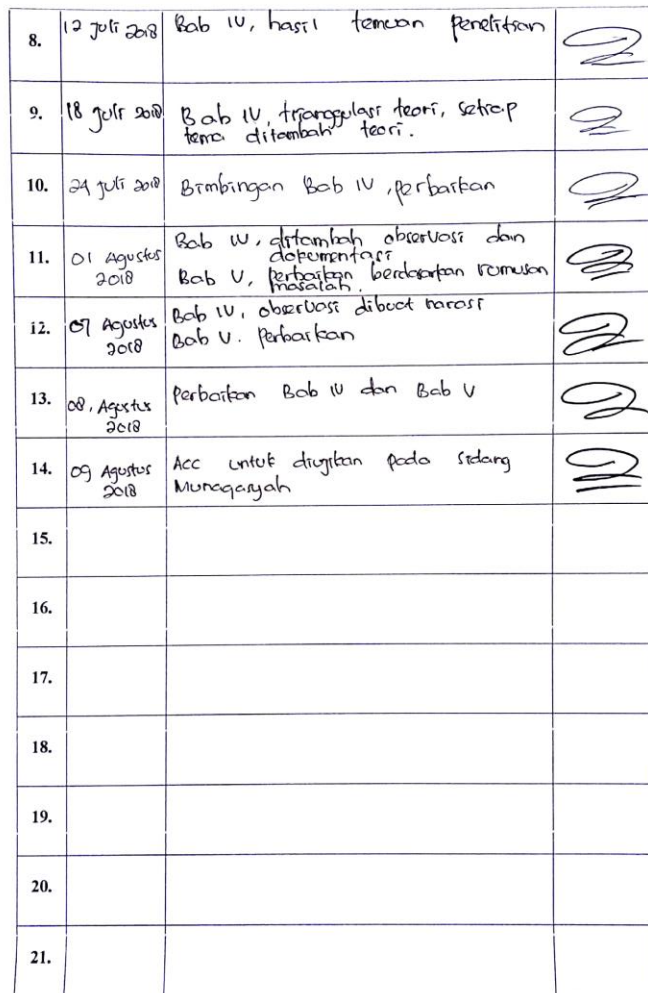 8. 12 Juli 2018 Bab IV, hasil temuan penelitian
9. 18 Juli 2018 Bab IV, trianggulasi teori, setiap
tema ditambah teori.
10. 24 Juli 2018 Bimbingan Bab IV, perbaikan
11. 01 Agustus 2018 Bab IV, ditambah observasi dan
dokumentasi
Bab V, Perbaikan berdasarkan rumusan
masalah.
12. 07 Agustus 2018 Bab IV, observasi dibuat narasi
Bab V. Perbaikan
13. 08, Agustus 2018 Perbaikan Bab IV dan Bab V
14. 09 Agustus 2018 Acc untuk diujikan pada Sidang
Munaqasyah
15.
16.
17.
18.
19.
20.
21.